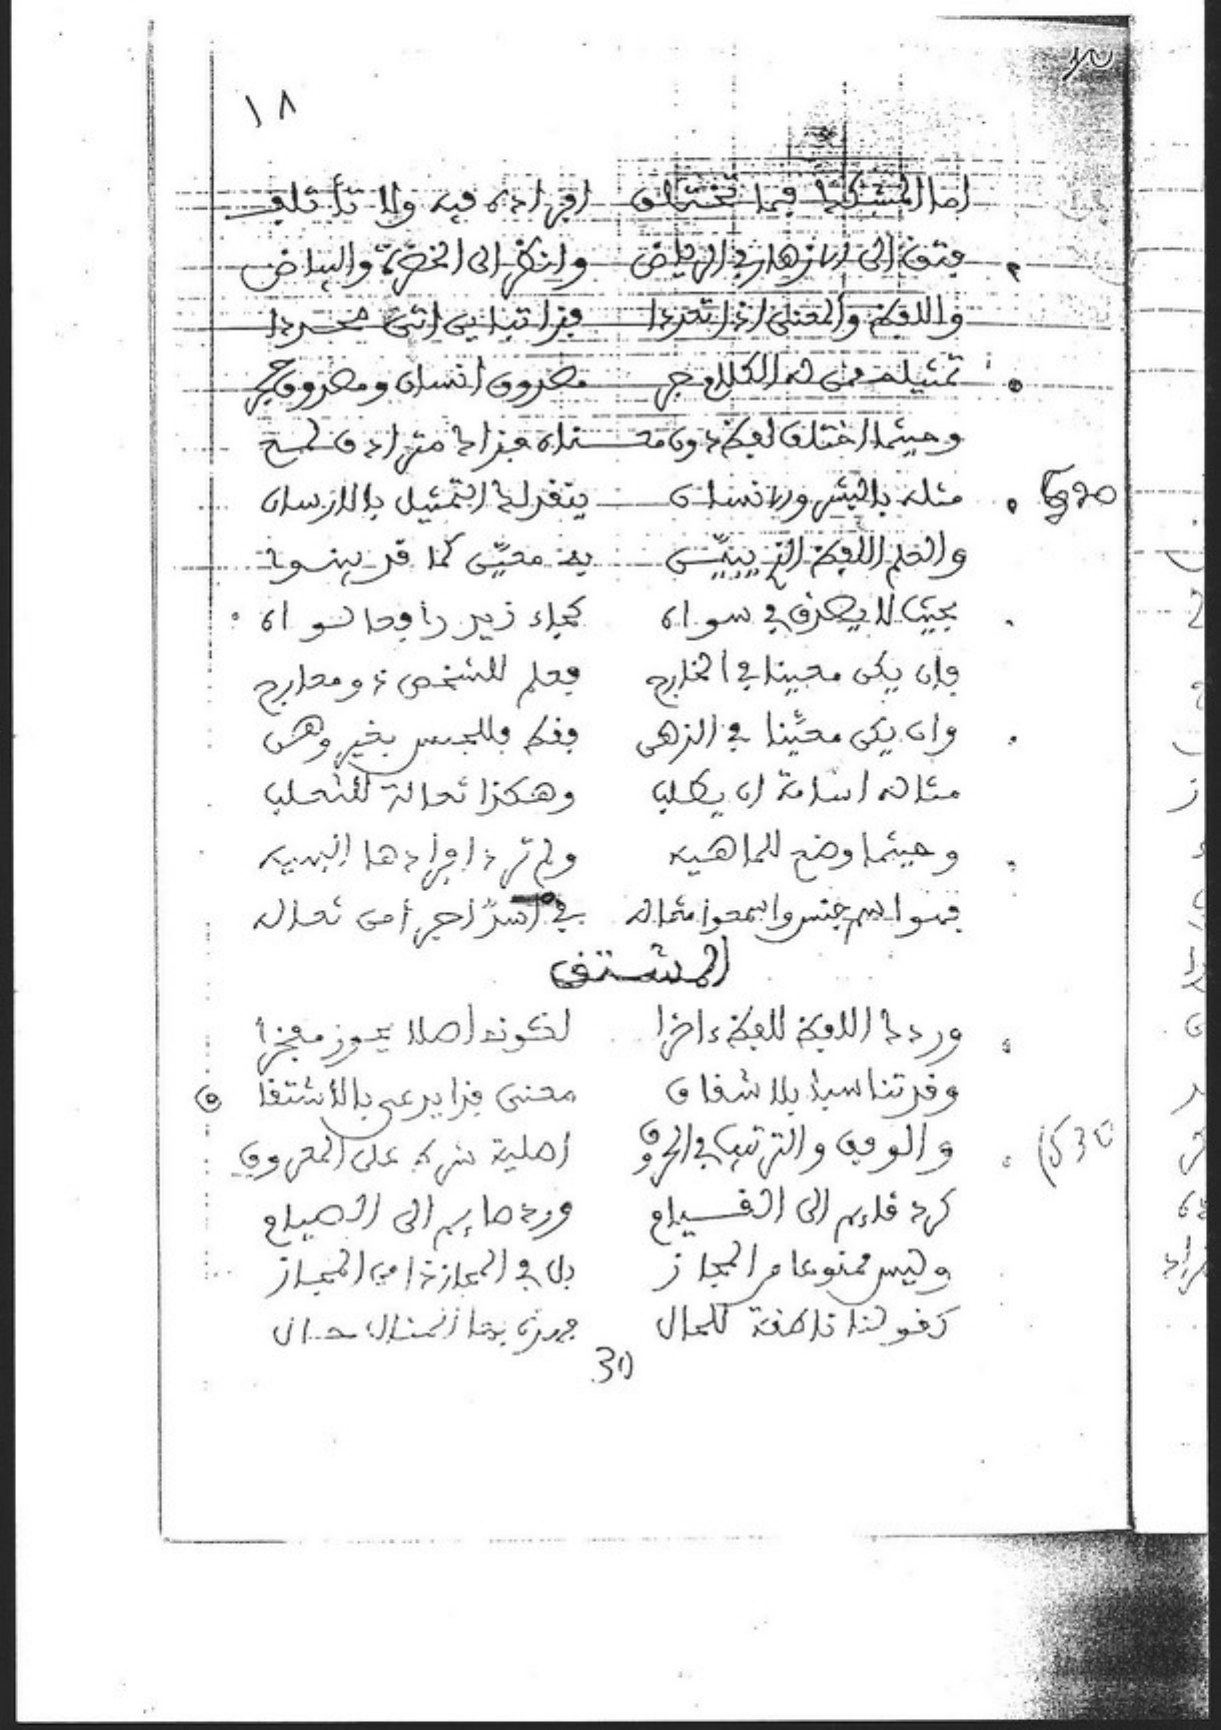 ١٨
اما المشككة فما تختلف افراده فيه ولا تأتلف
فتق الى الازهار في الرياض وانظر الى الخضرة والبياض
واللفظ والمعنى اذا تعددا فذا تباين اتى مجردا
تمثيله من الكلام جر معروف انسان ومعروف حجر
وحيثما اختلف لفظ دون معناه فذا مترادف
مثله بالبشر والانسان يتفر لها التمثيل بالانسان
والعلم اللفظ الذي يبين به معين كما قد بينوا
بحيث لا يصدق في سواه كجاء زيد
وان يكن معينا في الخارج فعلم للشخص ذو معارج
وان يكن معينا في الذهن فقط فللجنس بغير وهن
مثاله اسامة ان يطلب وهكذا ثعالة للثعلب
وحيثما وضع للماهيه ولم ترد افرادها البهيه
فهو اسم جنس واسمعوا مثاله في أسد أجرأ من ثعاله
المشتق
وردك اللفظ للفظ ءاخرا لكونه أصلا يجوز مفخرا
وقد تناسبا بلا شقاق معنى فذا يدعى بالاشتقاق
والوفق والترتيب في الحروف اصلية شرط على المعروف
كرد قاءم الى القيام ورد صاءم الى الصيام
وليس ممنوعا من المجاز بل في المجاز ذا من المجاز
كقولنا ناطقة للحال فهذه بها المثال حال
30